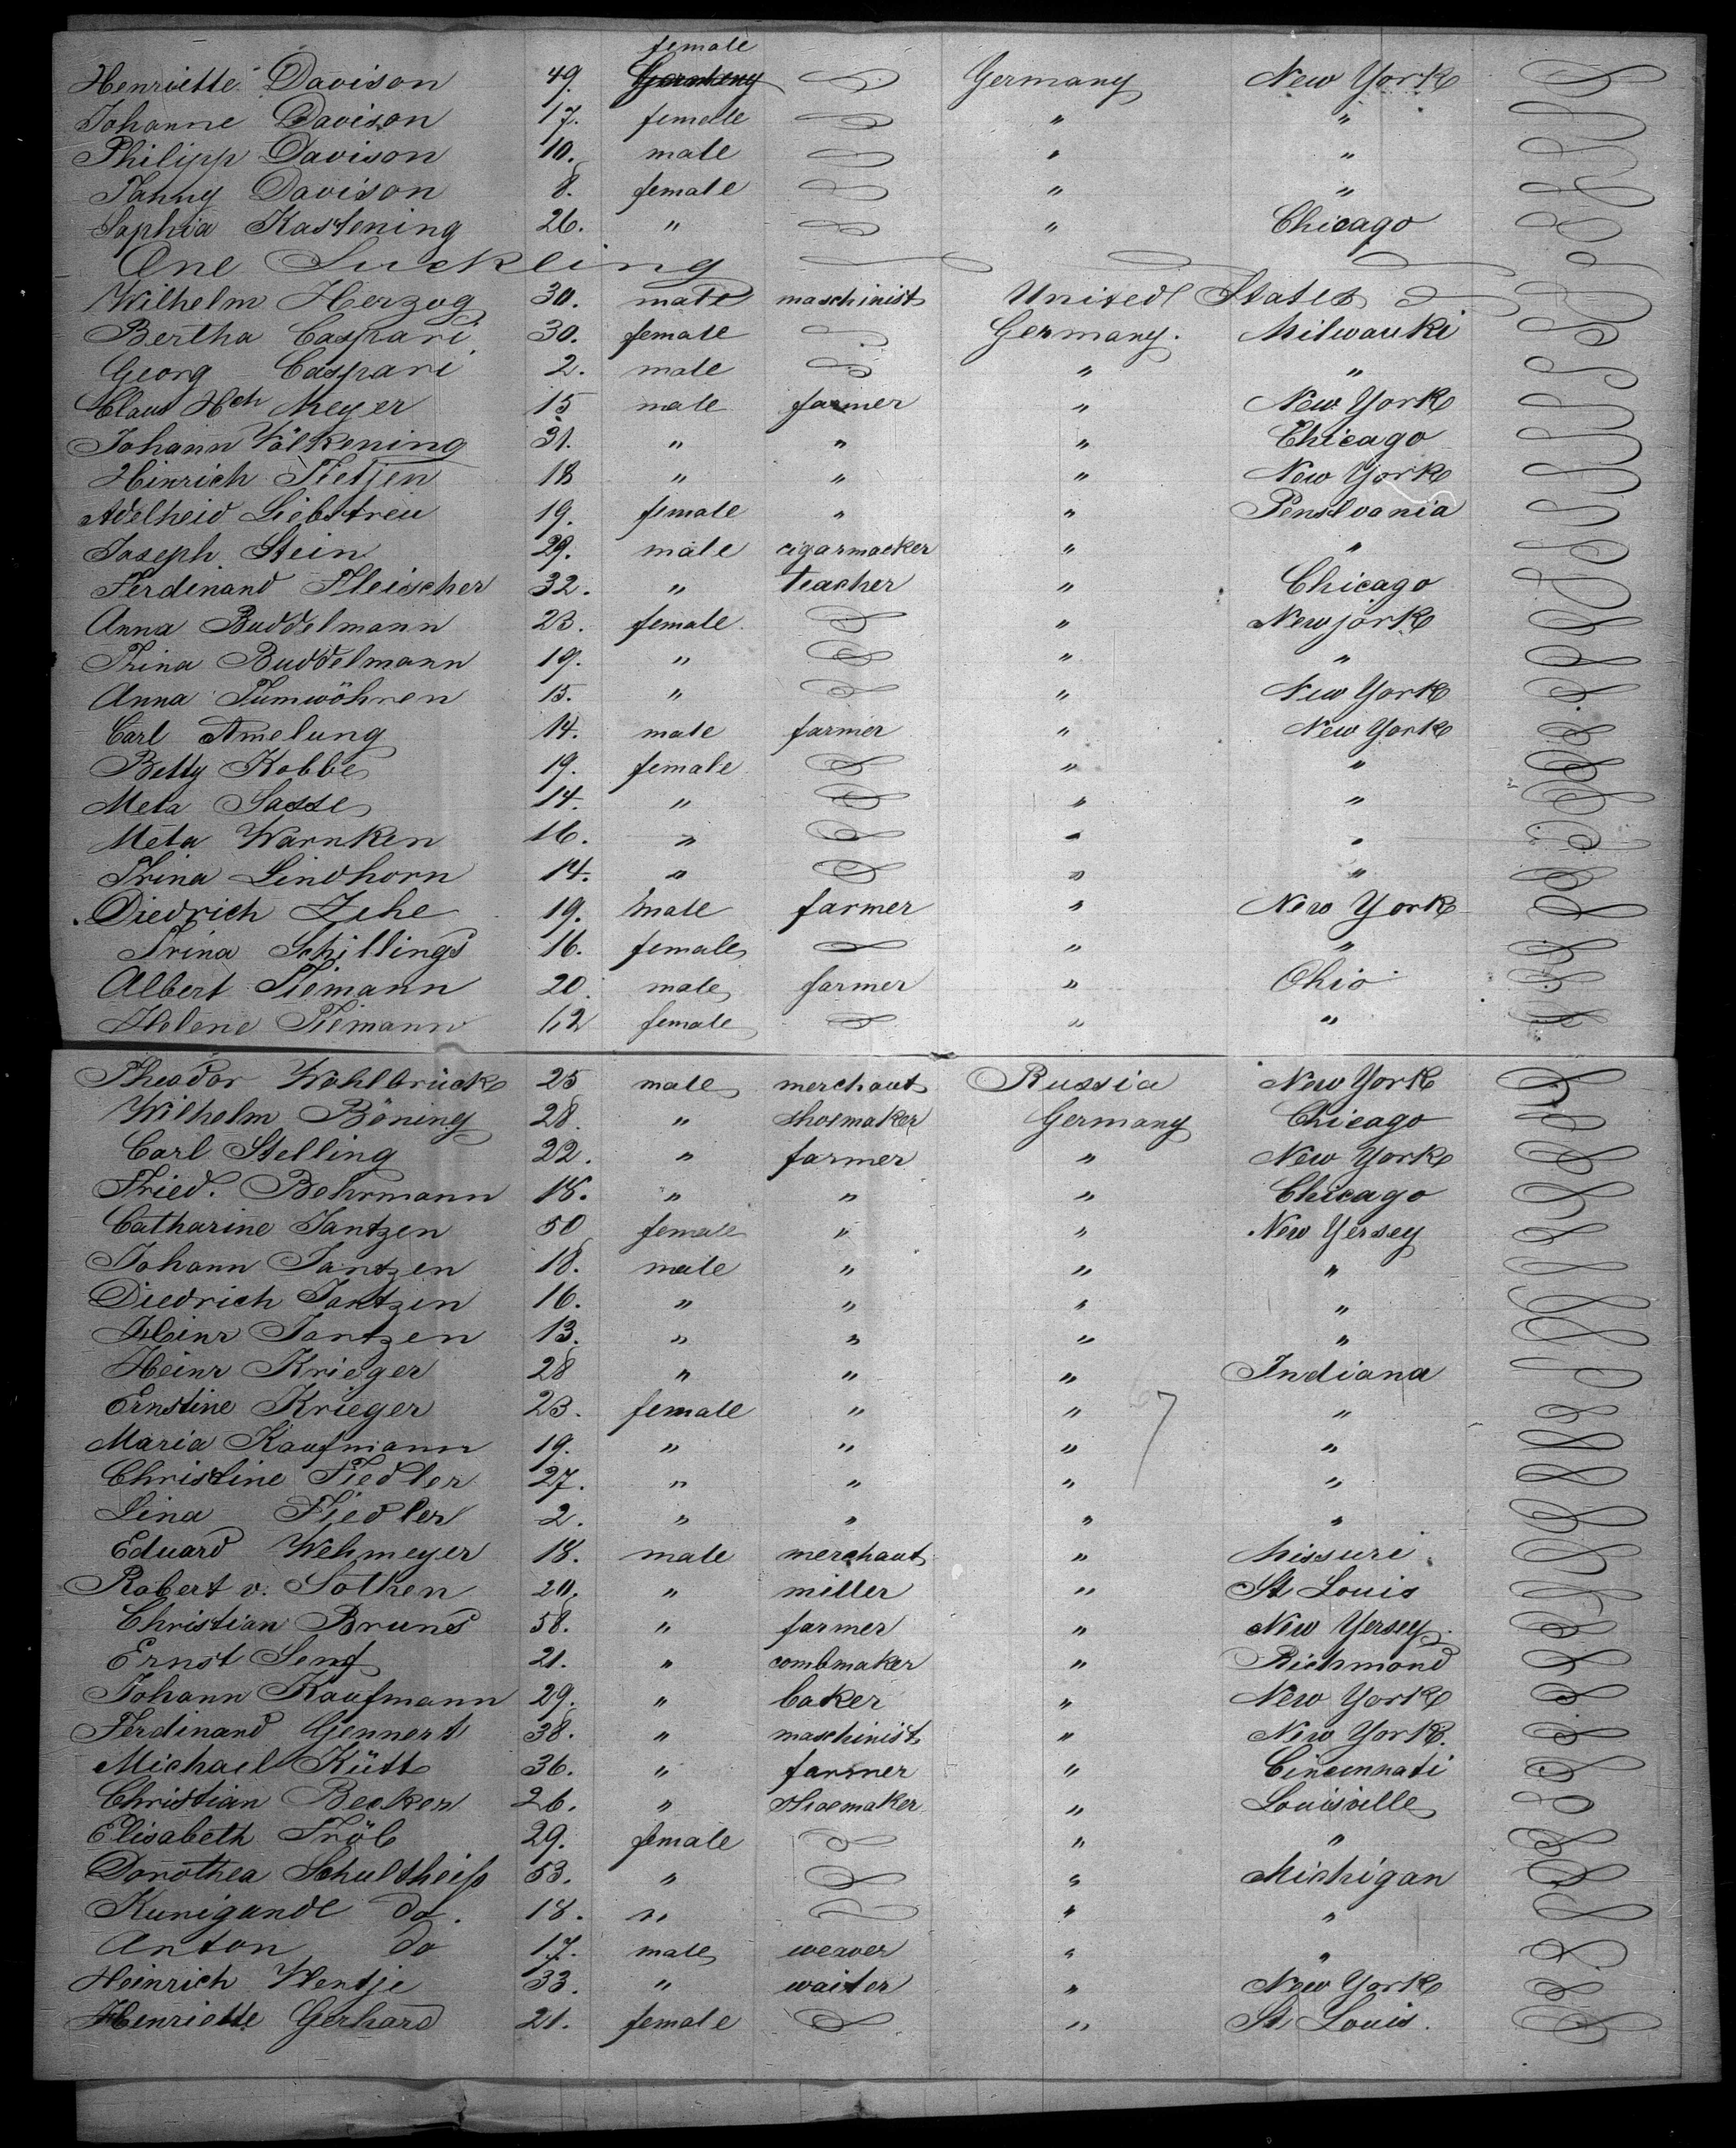 female
Henriette Davison 49. Germany Germany New York
Johanne Davison 17. female " "
Philipp Davison 10. male " "
Fanny Davison 8. female " "
Sophia Kastening 26. " " Chicago
One Suckling
Wilhelm Herzog 30. male maschinist United States
Bertha Caspari 30. female Germany. Milwauki
Georg Caspari 2. male " "
Claus Hch Meyer 15 male farmer " New York
Johann Völkening 31. " " " Chicago
Hinrich Tietjen 18 " " " New York
Adelheid Liebstreu 19. female " " Penslvania
Joseph Stein 29. male cigarmaeker " "
Ferdinand Fleischer 32. " teacher " Chicago
Anna Buddelmann 23. female " New jork
Trina Buddelmann 19. " " "
Anna Tumwöhren 15. " " New York
Carl Amelung 14. male farmer " New York
Betty Kobbe 19. female " "
Meta Sasse 14. " " "
Meta Warnken 16. " " "
Trina Lindhorn 14. " " "
Diedrich Jehe 19. male farmer " New York
Trina Schillings 16. female " "
Albert Tiemann 20. male farmer " Ohio
Helene Tiemann 12 female " "
Theodor Wohlbrück 25 male merchant Russia New York
Wilhelm Böning 28. " shoemaker Germany Chicago
Carl Stelling 22. " farmer " New York
Fried. Behrmann 18. " " " Chicago
Catharine Jantzen 50 female " " New Yersey
Johann Jantzen 18. male " " "
Diedrich Jantzen 16. " " " "
Heinr Jantzen 13. " " " "
Heinr Krieger 28 " " " Indiana
Ernstine Krieger 23. female " " "
Maria Kaufmann 19. " " " "
Christine Fiedler 27. " " " "
Lina Fiedler 2. " " " "
Eduard Wehmeyer 18. male merchant " Missuri
Robert v. Sothen 20. " miller " St Louis
Christian Bruns 58. " farmer " New Yersey
Ernst Senf 21. " combmaker " Richmond
Johann Kaufmann 29. " baker " New York
Ferdinand Gennert 38. " maschinist " New York.
Michael Kütt 36. " farmer " Cincinnati
Christian Becker 26. " shoemaker " Louisville
Elisabeth Tröb 29. female " "
Dorothea Schultheiß 53. " " Michigan
Kunigande do. 18. " " "
Anton do 17. male weaver " "
Heinrich Wentje 33. " waiter " New York
Henriette Gerhard 21. female " St Louis.